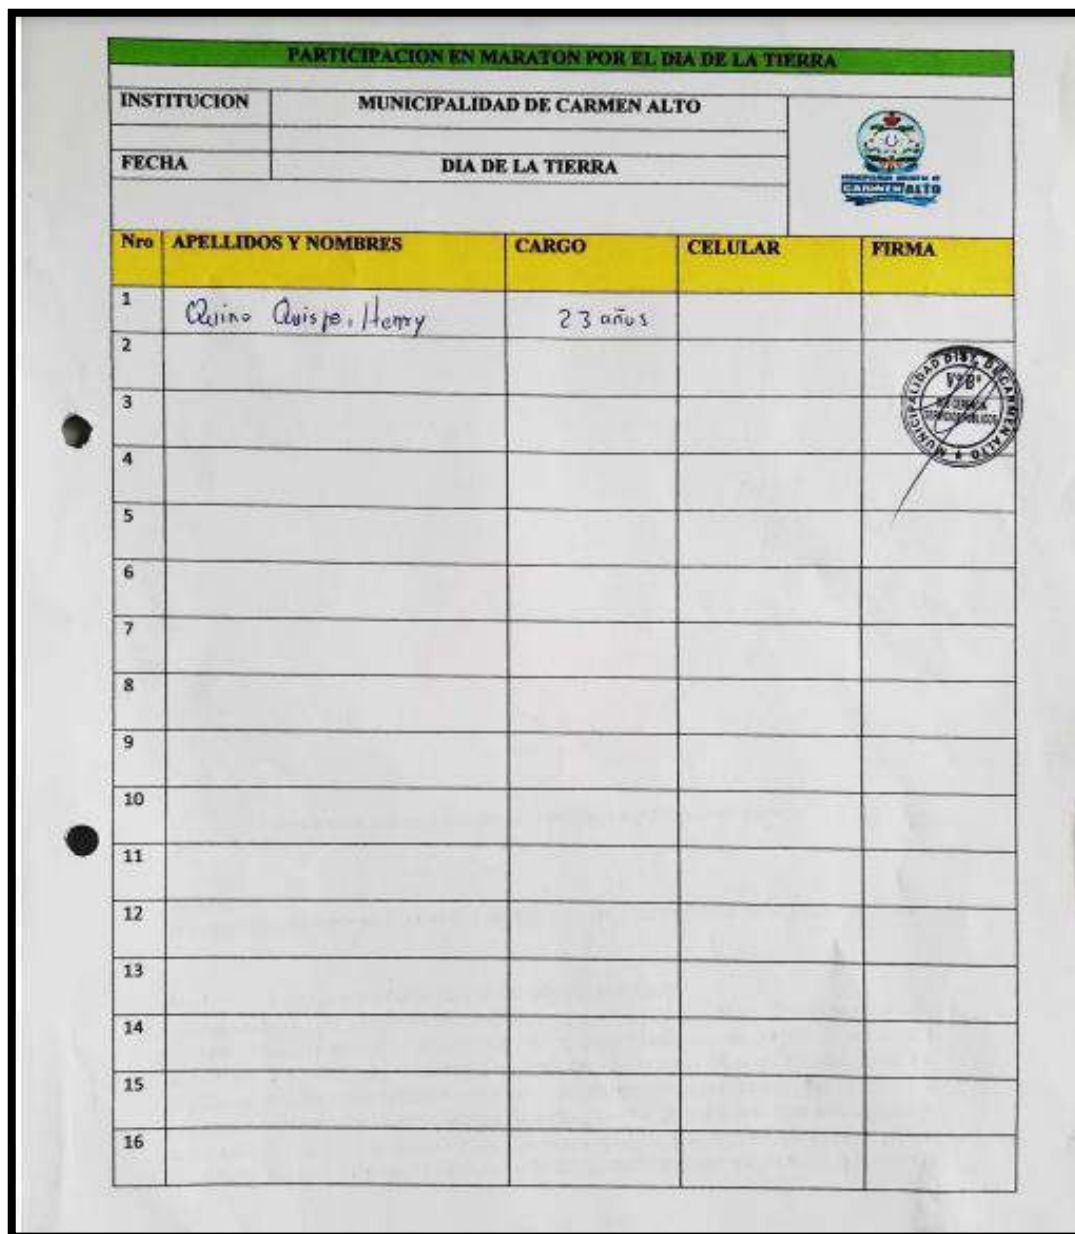 PARTICIPACION EN MARATON POR EL DIA DE LA TIERRA
INSTITUCION MUNICIPALIDAD DE CARMEN ALTO
FECHA DIA DE LA TIERRA
CARMEN ALTO
Nro APELLIDOS Y NOMBRES CARGO CELULAR FIRMA
1 Quino Quispe, Henry 23 años
2
3
4
5
6
7
8
9
10
11
12
13
14
15
16
MUNICIPALIDAD DIST. DE CARMEN ALTO
V°B°